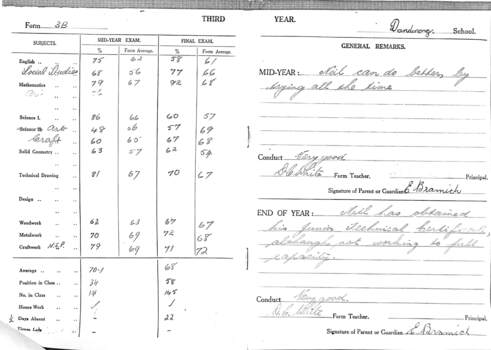 THIRD YEAR.
Form 3B
Dandenong School.
SUBJECTS. MID-YEAR EXAM. FINAL EXAM.
% Form Average. % Form Average.
English .. .. 75 62 58 61
Social Studies .. 68 56 77 66
Mathematics .. 79 67 92 68
Science I. .. 86 66 60 57
Science II. Art .. 48 56 57 69
Craft .. 60 60 67 68
Solid Geometry .. 63 57 62 54
Technical Drawing .. 81 67 70 67
Design .. ..
Woodwork .. 62 63 67 67
Metalwork .. 70 69 72 68
Craftwork .. 79 69 71 72
Average .. .. 70·1 68
Position in Class .. 34 58
No. in Class .. 145
Home Work ..
½ Days Absent .. - 22
Times Late .. - -
GENERAL REMARKS.
MID-YEAR: Neil can do better by
trying all the time
Conduct Very good
D. C. White Form Teacher. Principal.
Signature of Parent or Guardian E Bramich
END OF YEAR: Neil has obtained
his Junior Technical Certificate,
although not working to full
capacity.
Conduct Very good.
D. C. White Form Teacher. Principal.
Signature of Parent or Guardian E Bramich